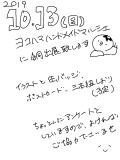 2019
10.13(日)
ヨコハマハンドメイドマルシェ
に初出展致します
イラストと缶バッジ、
ポストカード、三本組しおり
(予定)
ちょっとしたアンケートと
していますので、よければ
ご協力下さいませ